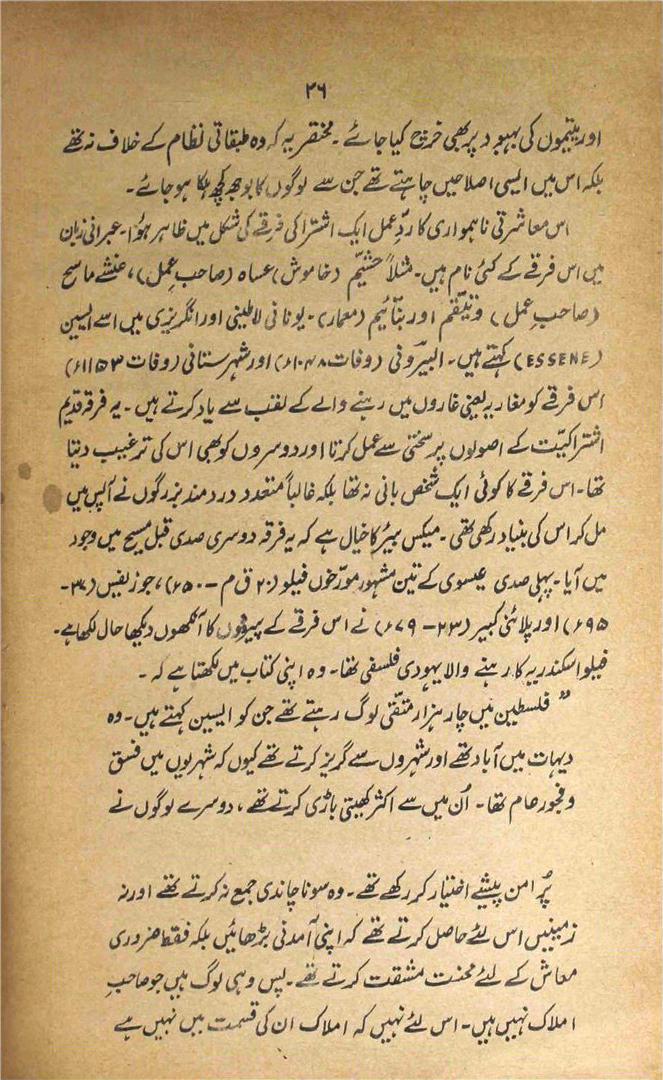 ۲۶
اور یتیموں کی بہبود پر بھی خرچ کیا جائے ۔ مختصر یہ کہ وہ طبقاتی نظام کے خلاف نہ تھے
بلکہ اس میں ایسی اصلاحیں چاہتے تھے جن سے لوگوں کا بوجھ کچھ ہلکا ہو جائے ۔
اس معاشرتی ناہمواری کا ردِّعمل ایک اشتراکی فرقے کی شکل میں ظاہر ہُوا ۔ عبرانی زبان
میں اس فرقے کے کئی نام ہیں۔ مثلاً حشیّم (خاموش) عساہ (صاحبِ عمل) ، عنشے ماسح
(صاحبِ عمل) وتیّقم اور بنّائیم (معمار) ۔ یونانی لاطینی اور انگریزی میں اسے ایسین
(ESSENE) کہتے ہیں۔ البیرونی (وفات ۱۰۴۸ء) اور شہرستانی (وفات ۱۱۵۳ء)
اس فرقے کو مغاریہ یعنی غاروں میں رہنے والے کے لقب سے یاد کرتے ہیں ۔ یہ فرقہ قدیم
اشتراکیّت کے اصولوں پر سختی سے عمل کرتا اور دوسروں کو بھی اس کی ترغیب دیتا
تھا۔ اس فرقے کا کوئی ایک شخص بانی نہ تھا بلکہ غالباً متعدد دردمند بزرگوں نے آپس میں
مل کر اس کی بنیاد رکھی تھی ۔ میکس بیئر کا خیال ہے کہ یہ فرقہ دوسری صدی قبل مسیح میں وجود
میں آیا ۔ پہلی صدی عیسوی کے تین مشہور مورّخوں فیلو (۲۰ ق م ۔ ۵۰ء) ، جوزیفس (۳۷۔
۹۵ء) اور پلائنی کبیر (۲۳ ۔ ۷۹ء) نے اس فرقے کے پیروؤں کا آنکھوں دیکھا حال لکھا ہے۔
فیلو اسکندریہ کا رہنے والا یہودی فلسفی تھا۔ وہ اپنی کتاب میں لکھتا ہے کہ ۔
” فلسطین میں چار ہزار متّقی لوگ رہتے تھے جن کو ایسین کہتے ہیں ۔ وہ
دیہات میں آباد تھے اور شہروں سے گریز کرتے تھے کیوں کہ شہریوں میں فسق
و فجور عام تھا ۔ اُن میں سے اکثر کھیتی باڑی کرتے تھے ، دوسرے لوگوں نے
پُر امن پیشے اختیار کر رکھے تھے ۔ وہ سونا چاندی جمع نہ کرتے تھے اور نہ
زمینیں اس لئے حاصل کرتے تھے کہ اپنی آمدنی بڑھائیں بلکہ فقط ضروری
معاش کے لئے محنت مشقت کرتے تھے ۔ پس وہی لوگ ہیں جو صاحبِ
املاک نہیں ہیں ۔ اس لئے نہیں کہ املاک ان کی قسمت میں نہیں ہے